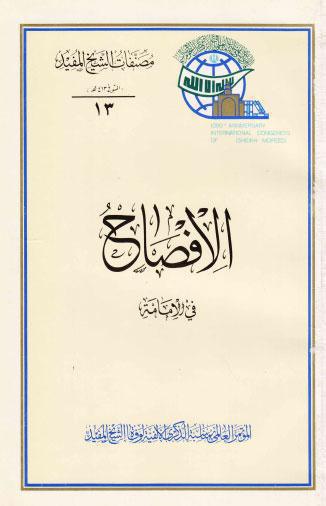 مصنفات الشيخ المفيد
(المتوفى ٤١٣ هـ)
١٣
لا إله إلا الله
1000th ANNIVERSARY
INTERNATIONAL CONGRESS
OF (SHEIKH MOFEED)
الإفصاح
في الإمامة
المؤتمر العالمي بمناسبة الذكرى الألفية لوفاة الشيخ المفيد